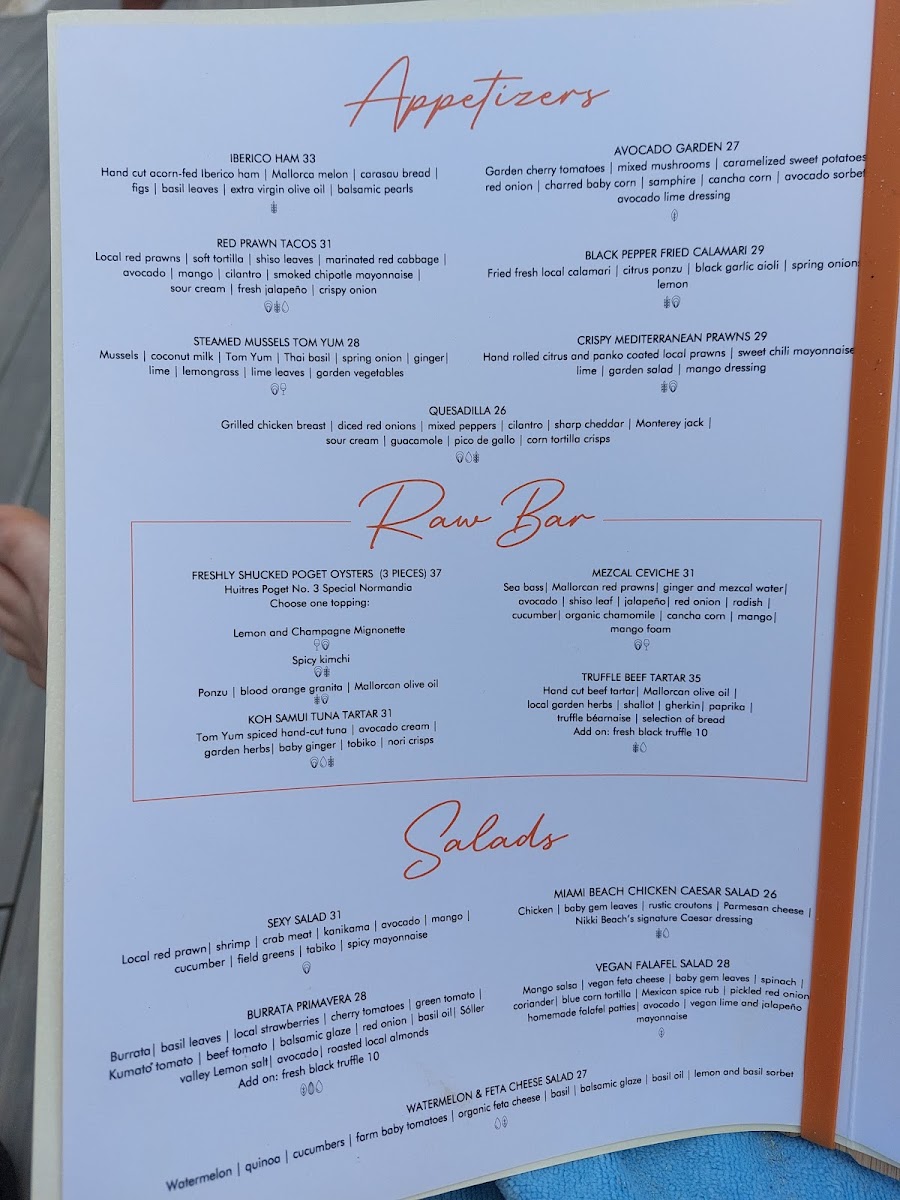 Appetizers
IBERICO HAM 33
Hand cut acorn-fed Iberico ham | Mallorca melon | carasau bread |
figs | basil leaves | extra virgin olive oil | balsamic pearls
AVOCADO GARDEN 27
Garden cherry tomatoes | mixed mushrooms | caramelized sweet potatoes
red onion | charred baby corn | samphire | cancha corn | avocado sorbet
avocado lime dressing
RED PRAWN TACOS 31
Local red prawns | soft tortilla | shiso leaves | marinated red cabbage |
avocado | mango | cilantro | smoked chipotle mayonnaise |
sour cream | fresh jalapeño | crispy onion
BLACK PEPPER FRIED CALAMARI 29
Fried fresh local calamari | citrus ponzu | black garlic aioli | spring onions
lemon
STEAMED MUSSELS TOM YUM 28
Mussels | coconut milk | Tom Yum | Thai basil | spring onion | ginger|
lime | lemongrass | lime leaves | garden vegetables
CRISPY MEDITERRANEAN PRAWNS 29
Hand rolled citrus and panko coated local prawns | sweet chili mayonnaise
lime | garden salad | mango dressing
QUESADILLA 26
Grilled chicken breast | diced red onions | mixed peppers | cilantro | sharp cheddar | Monterey jack |
sour cream | guacamole | pico de gallo | corn tortilla crisps
Raw Bar
FRESHLY SHUCKED POGET OYSTERS (3 PIECES) 37
Huitres Poget No. 3 Special Normandia
Choose one topping:
Lemon and Champagne Mignonette
Spicy kimchi
Ponzu | blood orange granita | Mallorcan olive oil
KOH SAMUI TUNA TARTAR 31
Tom Yum spiced hand-cut tuna | avocado cream |
garden herbs| baby ginger | tobiko | nori crisps
MEZCAL CEVICHE 31
Sea bass| Mallorcan red prawns| ginger and mezcal water|
avocado | shiso leaf | jalapeño| red onion | radish |
cucumber| organic chamomile | cancha corn | mango|
mango foam
TRUFFLE BEEF TARTAR 35
Hand cut beef tartar| Mallorcan olive oil |
local garden herbs | shallot | gherkin| paprika |
truffle béarnaise | selection of bread
Add on: fresh black truffle 10
Salads
SEXY SALAD 31
Local red prawn| shrimp | crab meat | kanikama | avocado | mango |
cucumber | field greens | tabiko | spicy mayonnaise
MIAMI BEACH CHICKEN CAESAR SALAD 26
Chicken | baby gem leaves | rustic croutons | Parmesan cheese |
Nikki Beach's signature Caesar dressing
BURRATA PRIMAVERA 28
Burrata| basil leaves | local strawberries | cherry tomatoes | green tomato |
Kumato tomato | beef tomato | balsamic glaze | red onion | basil oil| Sóller
valley Lemon salt| avocado| roasted local almonds
Add on: fresh black truffle 10
VEGAN FALAFEL SALAD 28
Mango salsa | vegan feta cheese | baby gem leaves | spinach |
coriander| blue corn tortilla | Mexican spice rub | pickled red onion
homemade falafel patties| avocado | vegan lime and jalapeño
mayonnaise
WATERMELON & FETA CHEESE SALAD 27
Watermelon | quinoa | cucumbers | farm baby tomatoes | organic feta cheese | basil | balsamic glaze | basil oil | lemon and basil sorbet